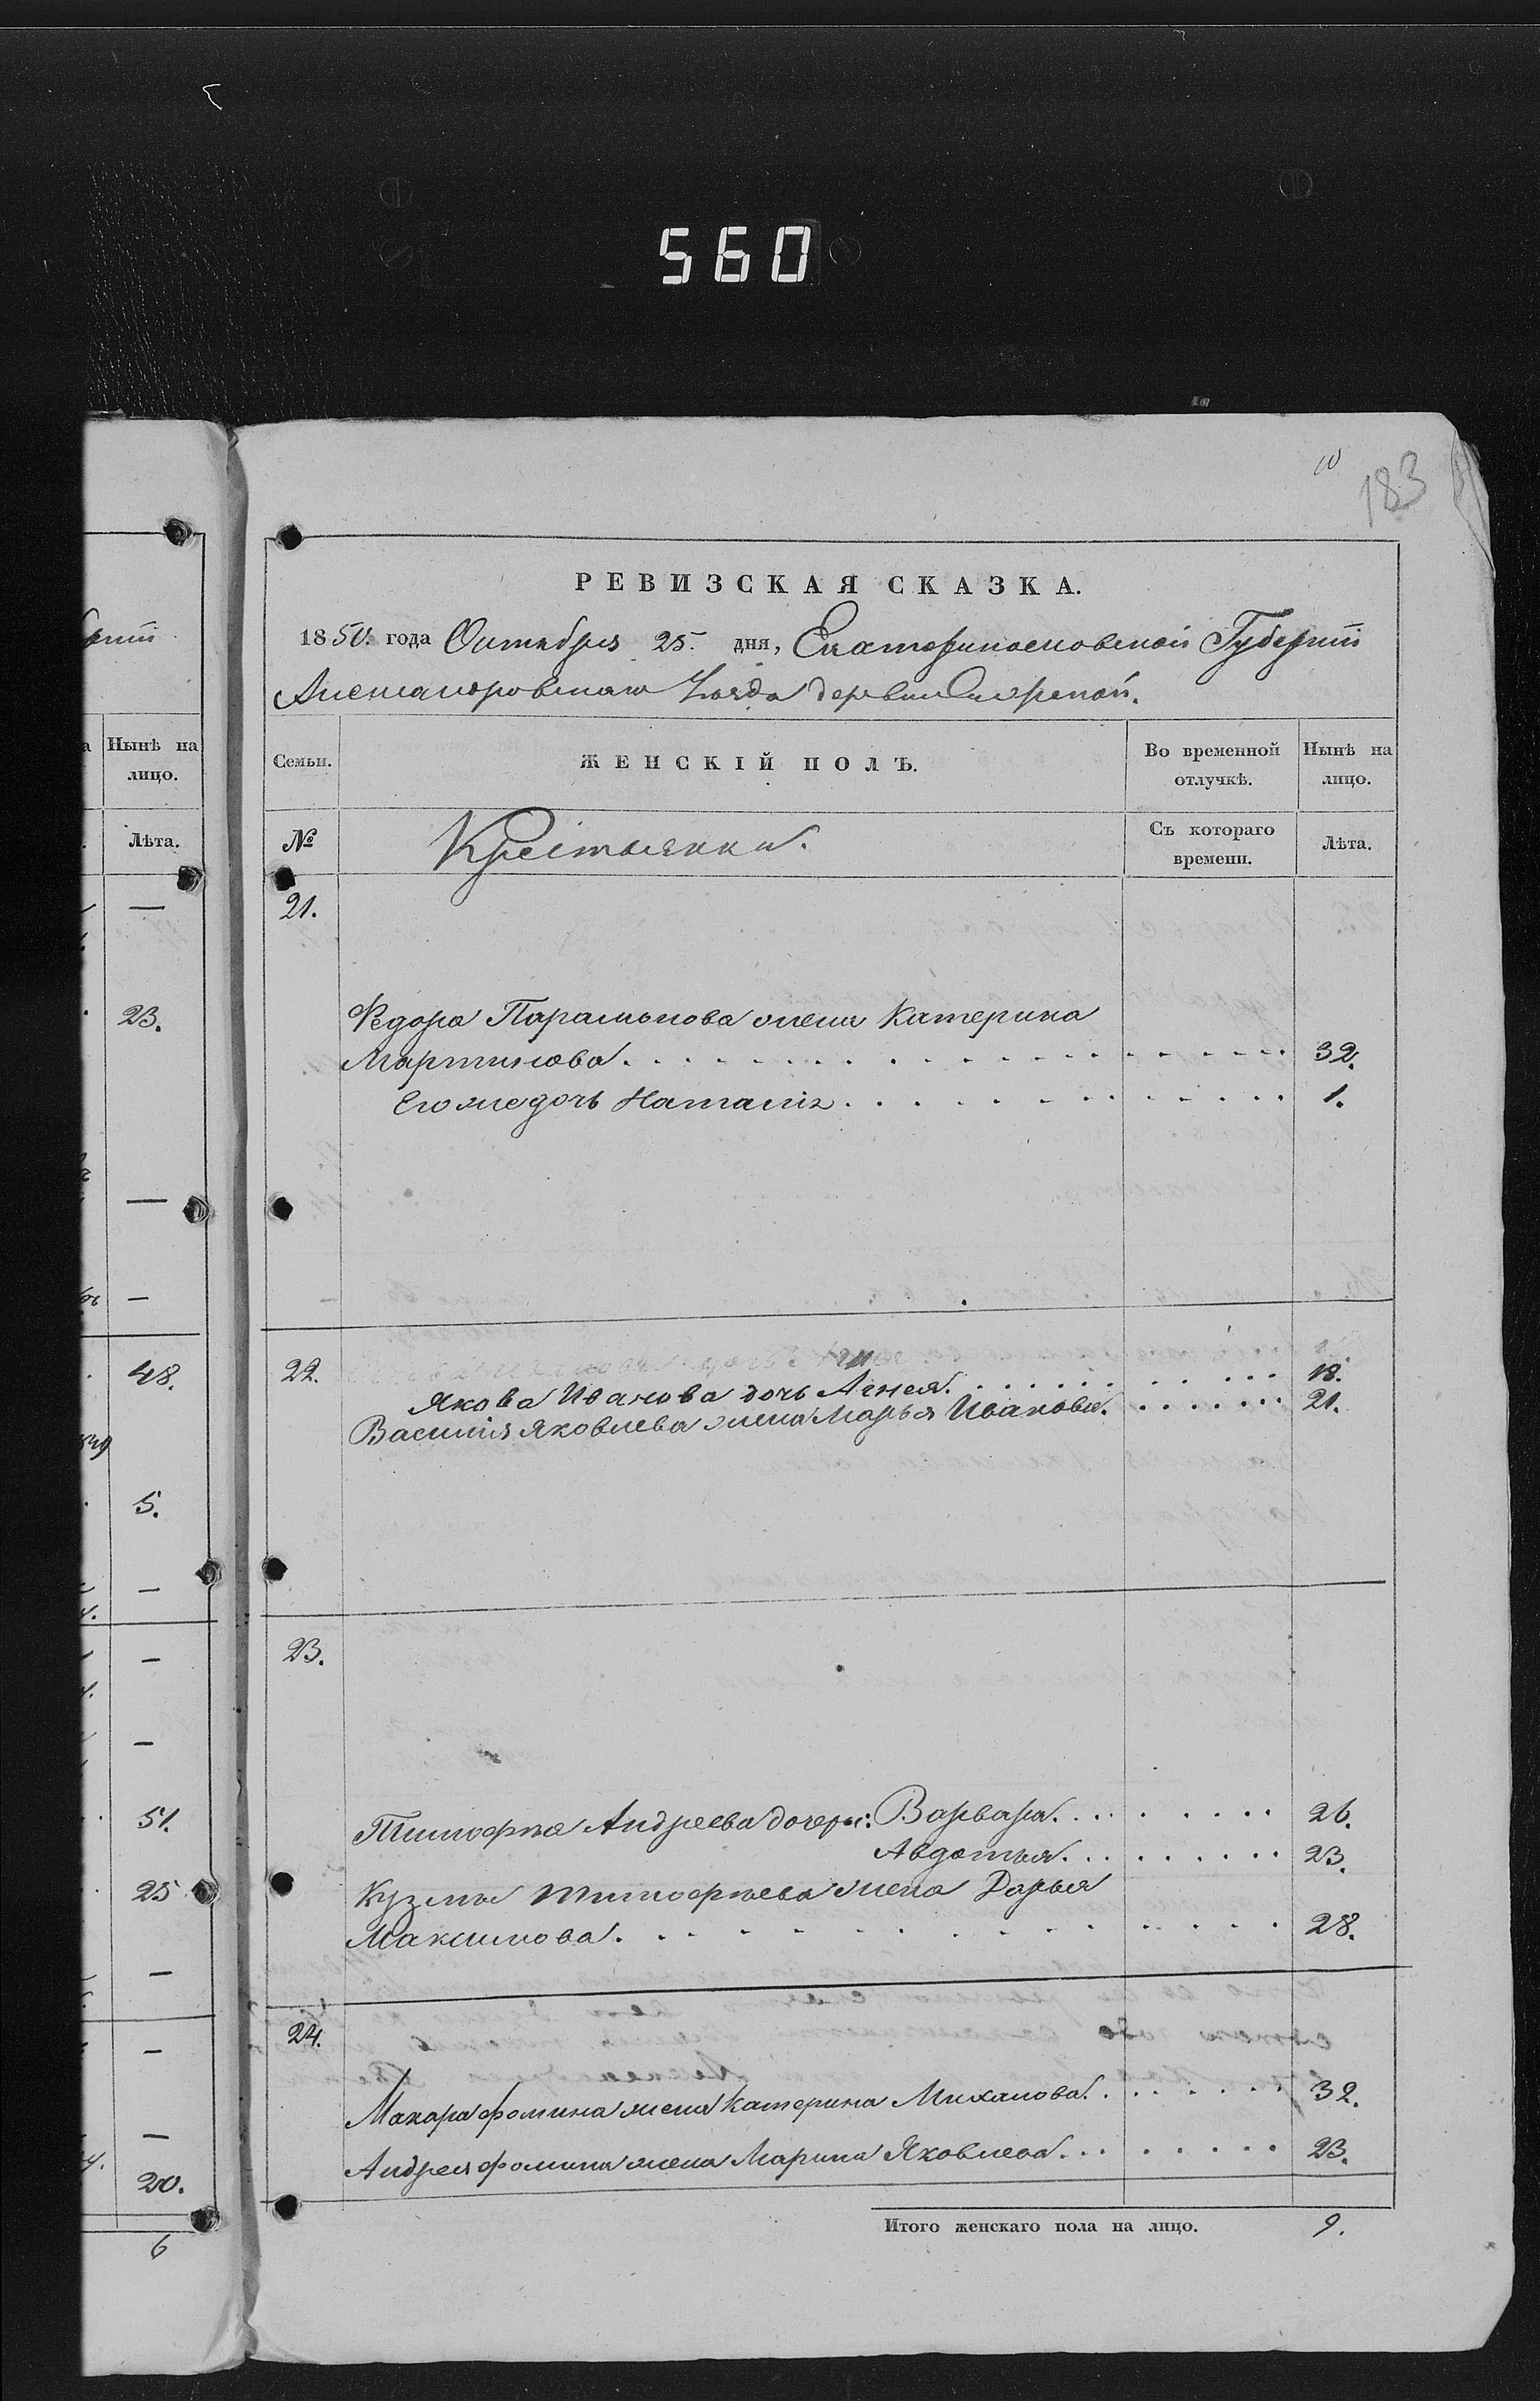 560
10
183
РЕВИЗСКАЯ СКАЗКА.
1850. года Октября 25. дня, Екатеринославской Губерніи
Александровскаго Уѣзда деревни
Нынѣ на лицо.
Лѣта.
—
23.
—
—
48.
5.
—
—
—
51.
25
—
—
—
20.
6
Семьи.
ЖЕНСКІЙ ПОЛЪ.
Во временной отлучкѣ.
Нынѣ на лицо.
№
Крестьянки.
Съ котораго времени.
Лѣта.
21.
Федора Парамонова жена Катерина
Мартинова. 32.
Его же дочь Наталія. 1.
22.
Якова Иванова дочь Агнея. 18.
Василія Яковлева жена Марья Иванова. 21.
23.
Тимофѣя Андреева дочери: Варвара. 26.
Авдотья. 23.
Кузмы Тимофѣева жена Дарья
Максимова. 28.
24.
Макара Фомина жена Катерина Михалова. 32.
Андрея Фомина жена Марина Яковлева. 23.
Итого женскаго пола на лицо. 9.